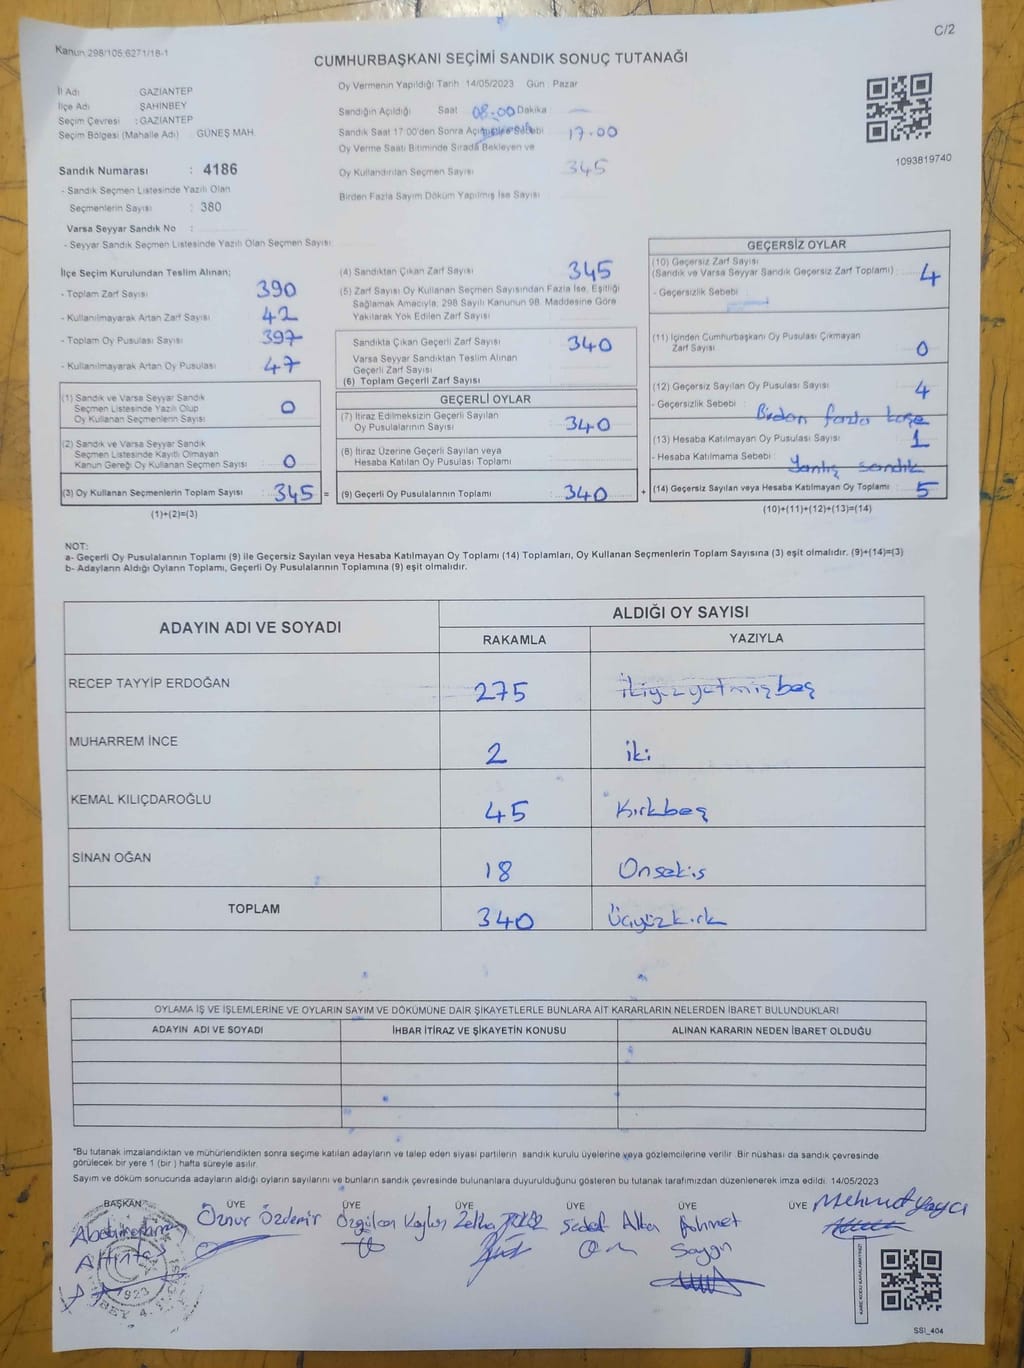 C/2
Kanun 298/105,6271/18-1
CUMHURBAŞKANI SEÇİMİ SANDIK SONUÇ TUTANAĞI
İl Adı GAZİANTEP
İlçe Adı ŞAHİNBEY
Seçim Çevresi : GAZİANTEP
Seçim Bölgesi (Mahalle Adı) GÜNEŞ MAH.
Sandık Numarası : 4186
- Sandık Seçmen Listesinde Yazılı Olan
Seçmenlerin Sayısı : 380
Varsa Seyyar Sandık No :
- Seyyar Sandık Seçmen Listesinde Yazılı Olan Seçmen Sayısı
Oy Vermenin Yapıldığı Tarih 14/05/2023 Gün : Pazar
Sandığın Açıldığı Saat 08.00 Dakika : —
Sandık Saat 17:00'den Sonra 17.00
Oy Verme Saati Bitiminde Sırada Bekleyen ve
Oy Kullandırılan Seçmen Sayısı 345
Birden Fazla Sayım Döküm Yapılmış İse Sayısı
1093819740
İlçe Seçim Kurulundan Teslim Alınan;
- Toplam Zarf Sayısı 390
- Kullanılmayarak Artan Zarf Sayısı 42
- Toplam Oy Pusulası Sayısı 397
- Kullanılmayarak Artan Oy Pusulası 47
(1) Sandık ve Varsa Seyyar Sandık
Seçmen Listesinde Yazılı Olup
Oy Kullanan Seçmenlerin Sayısı 0
(2) Sandık ve Varsa Seyyar Sandık
Seçmen Listesinde Kayıtlı Olmayan
Kanun Gereği Oy Kullanan Seçmen Sayısı 0
(3) Oy Kullanan Seçmenlerin Toplam Sayısı : 345 =
(1)+(2)=(3)
(4) Sandıktan Çıkan Zarf Sayısı 345
(5) Zarf Sayısı Oy Kullanan Seçmen Sayısından Fazla İse, Eşitliği
Sağlamak Amacıyla, 298 Sayılı Kanunun 98. Maddesine Göre
Yakılarak Yok Edilen Zarf Sayısı
Sandıkta Çıkan Geçerli Zarf Sayısı 340
Varsa Seyyar Sandıktan Teslim Alınan
Geçerli Zarf Sayısı
(6) Toplam Geçerli Zarf Sayısı
GEÇERLİ OYLAR
(7) İtiraz Edilmeksizin Geçerli Sayılan
Oy Pusulalarının Sayısı 340
(8) İtiraz Üzerine Geçerli Sayılan veya
Hesaba Katılan Oy Pusulası Toplamı
(9) Geçerli Oy Pusulalarının Toplamı 340 +
GEÇERSİZ OYLAR
(10) Geçersiz Zarf Sayısı
(Sandık ve Varsa Seyyar Sandık Geçersiz Zarf Toplamı) 4
- Geçersizlik Sebebi :
(11) İçinden Cumhurbaşkanı Oy Pusulası Çıkmayan
Zarf Sayısı 0
(12) Geçersiz Sayılan Oy Pusulası Sayısı 4
- Geçersizlik Sebebi : Birden fazla kaşe
(13) Hesaba Katılmayan Oy Pusulası Sayısı 1
- Hesaba Katılmama Sebebi : Yanlış sandık
(14) Geçersiz Sayılan veya Hesaba Katılmayan Oy Toplamı : 5
(10)+(11)+(12)+(13)=(14)
NOT:
a- Geçerli Oy Pusulalarının Toplamı (9) ile Geçersiz Sayılan veya Hesaba Katılmayan Oy Toplamı (14) Toplamları, Oy Kullanan Seçmenlerin Toplam Sayısına (3) eşit olmalıdır. (9)+(14)=(3)
b- Adayların Aldığı Oyların Toplamı, Geçerli Oy Pusulalarının Toplamına (9) eşit olmalıdır.
ADAYIN ADI VE SOYADI ALDIĞI OY SAYISI
RAKAMLA YAZIYLA
RECEP TAYYİP ERDOĞAN 275 ikiyüzyetmişbeş
MUHARREM İNCE 2 iki
KEMAL KILIÇDAROĞLU 45 Kırkbeş
SİNAN OĞAN 18 Onsekis
TOPLAM 340 Üçyüzkırk
OYLAMA İŞ VE İŞLEMLERİNE VE OYLARIN SAYIM VE DÖKÜMÜNE DAİR ŞİKAYETLERLE BUNLARA AİT KARARLARIN NELERDEN İBARET BULUNDUKLARI
ADAYIN ADI VE SOYADI İHBAR İTİRAZ VE ŞİKAYETİN KONUSU ALINAN KARARIN NEDEN İBARET OLDUĞU
*Bu tutanak imzalandıktan ve mühürlendikten sonra seçime katılan adayların ve talep eden siyasi partilerin sandık kurulu üyelerine veya gözlemcilerine verilir. Bir nüshası da sandık çevresinde
görülecek bir yere 1 (bir) hafta süreyle asılır.
Sayım ve döküm sonucunda adayların aldığı oyların sayılarını ve bunların sandık çevresinde bulunanlara duyurulduğunu gösteren bu tutanak tarafımızdan düzenlenerek imza edildi. 14/05/2023
BAŞKAN ÜYE ÜYE ÜYE ÜYE ÜYE ÜYE Mehmut Yaycı
Öznur Özdemir Özgülcan Zeliha Sedef Ahmet
Altıntaş Saygın
1923
KARE KODU KARALAMAYINIZ!
SSI_404